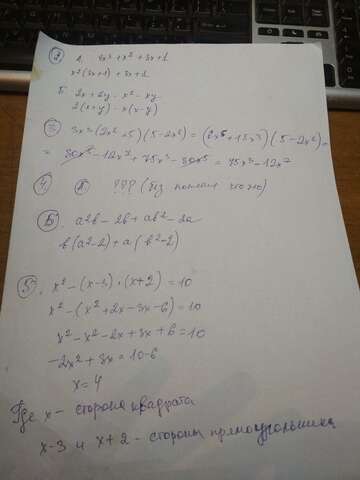 ② А. 3x³+x²+3x+1
x²(3x+1)+3x+1
Б. 2x+2y-x²-xy
2(x+y)-x(x-y)
③ 3x³(2x²+5)(5-2x²)=(6x⁵+15x³)(5-2x²)=
=30x⁵-12x⁷+75x³-30x⁵=75x³-12x⁷
④ А ???(без
Б. a²b-2b+ab²-2a
b(a²-2)+a(b²-2)
⑤. x²-(x-3)·(x+2)=10
x²-(x²+2x-3x-6)=10
x²-x²-2x+3x+6=10
-2x²+3x=10-6
x=4
Где x- сторона квадрата
x-3 и x+2- стороны прямоугольника